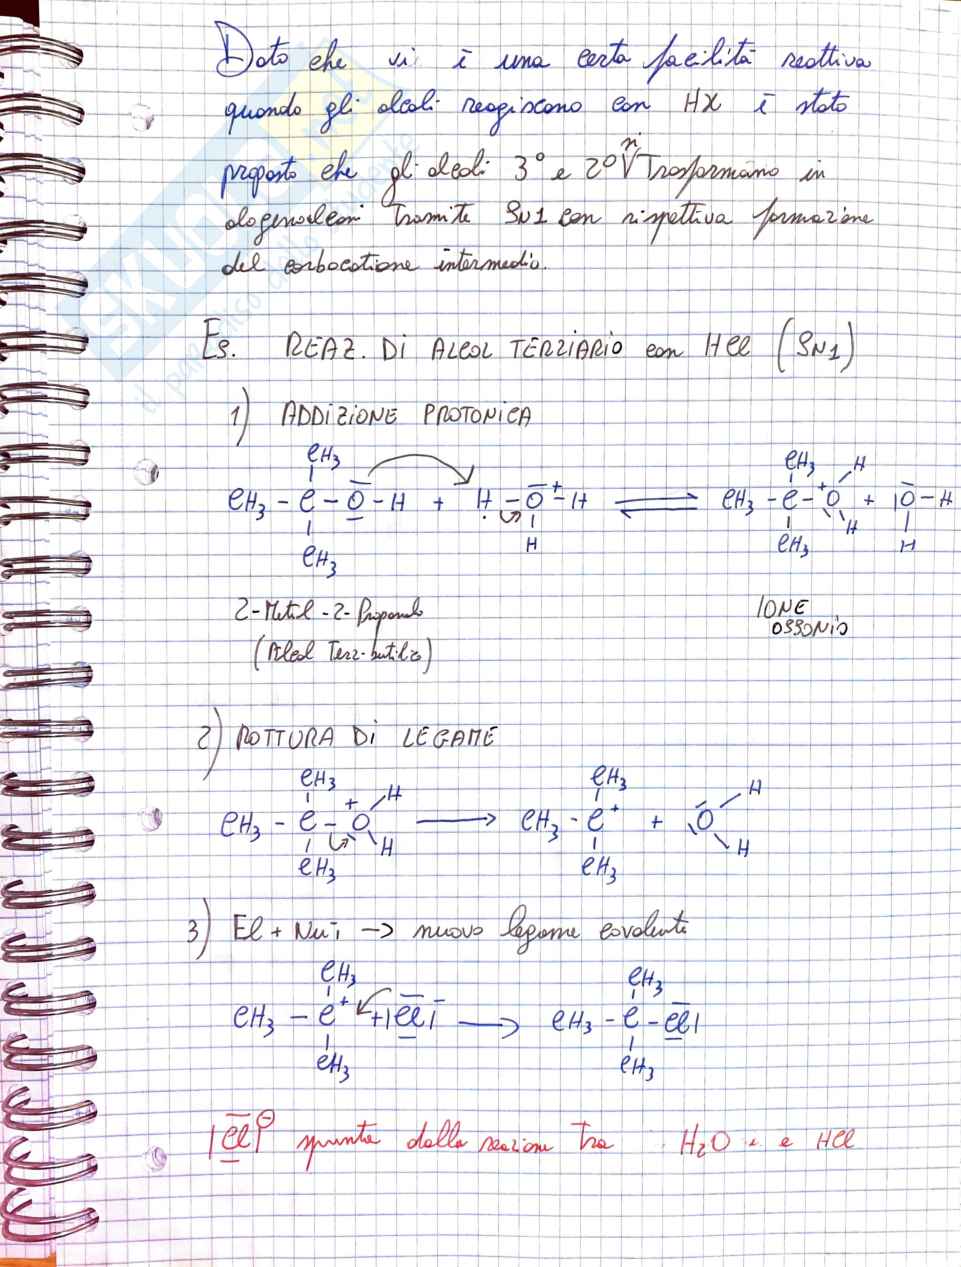 Dato che vi è una certa facilità reattiva
quando gli alcoli reagiscono con HX è stato
proposto che gli alcoli 3° e 2° si trasformano in
alogenoalcani tramite SN1 con rispettiva formazione
del carbocatione intermedio.
Es. REAZ. DI ALCOL TERZIARIO con HCl (SN1)
1) ADDIZIONE PROTONICA
CH3 CH3 H
CH3 - C - O - H + H - O+ - H ⇌ CH3 - C - +O + |O - H
CH3 H CH3 H H
2-Metil-2-Propanolo
(Alcol Terz-butilico)
IONE
OSSONIO
2) ROTTURA DI LEGAME
CH3 + H CH3 H
CH3 - C - O → CH3 - C+ + O
CH3 H CH3 H
3) El + Nu:- → nuovo legame covalente
CH3 CH3
CH3 - C+ + |Cl|- → CH3 - C - Cl|
CH3 CH3
|Cl|⊖ spunta dalla reazione tra H2O e HCl